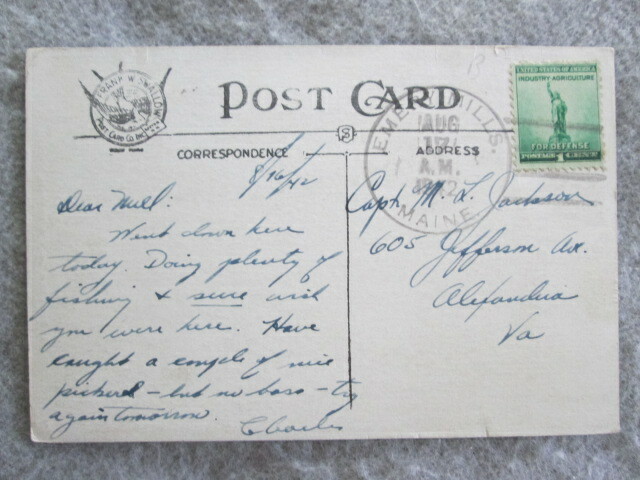 POST CARD
CORRESPONDENCE
ADDRESS
8/16/42
Dear Mell:
Went down here
today. Doing plenty of
fishing & sure wish
you were here. Have
caught a couple of nice
pickerel - but no bass - try
again tomorrow.
Charles
Capt. M. L. Jackson
605 Jefferson Ave.
Alexandria
Va
AUG
17
A.M.
MAINE
UNITED STATES OF AMERICA
INDUSTRY AGRICULTURE
FOR DEFENSE
POSTAGE 1 CENT
POST CARD CO. INC.